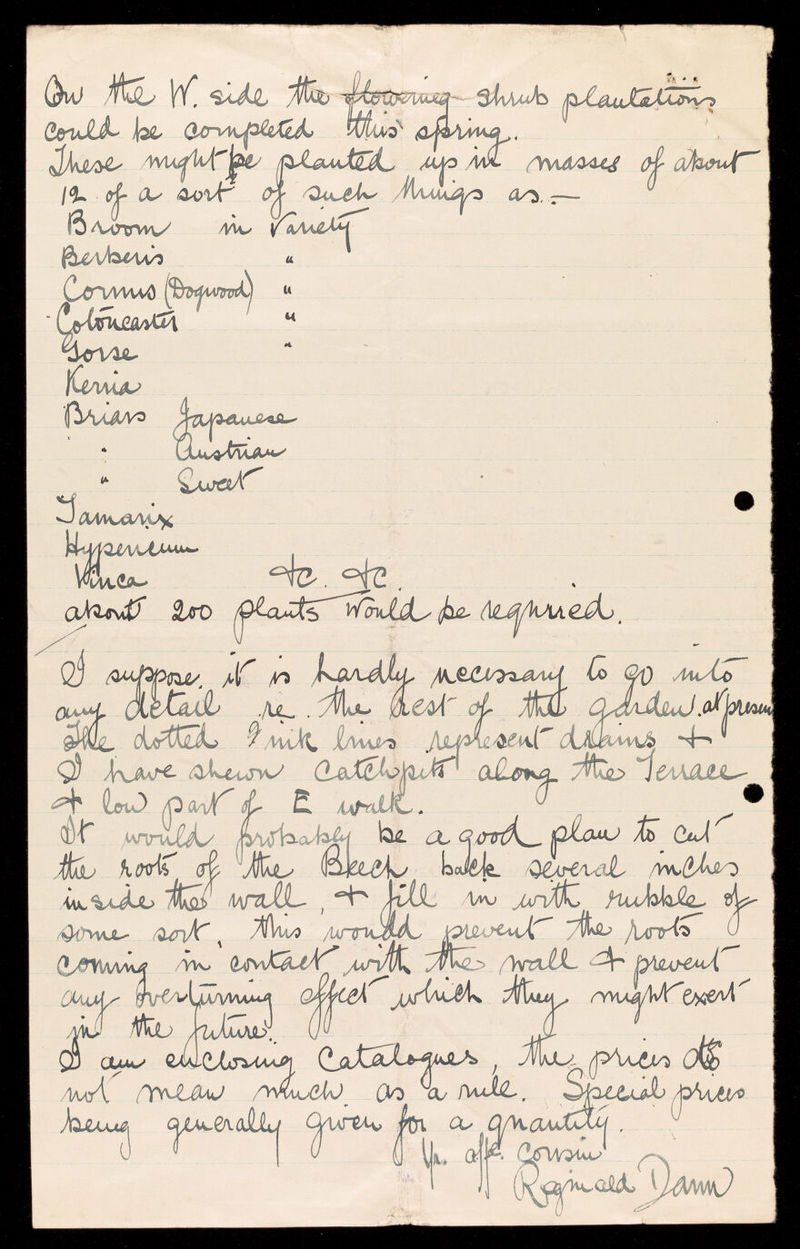 On the W. side the flowering shrub plantations
could be completed this spring.
These might be planted up in masses of about
12 of a sort of such things as. —
Broom in Variety
Berberis "
Cornus (Dogwood) "
Cotoneaster "
Gorse "
Kerria
Briars Japanese
" Austrian
" Sweet
Tamarix
Hypericum
Vinca &c. &c.
about 200 plants would be required.
I suppose, it is hardly necessary to go into
any detail re. the rest of the garden. at present
The dotted Pink lines represent drains &
I have shewn Catchpits along the Terrace
& low part of E walk.
It would probably be a good plan to cut
the roots of the Beech back several inches
inside the wall, & fill in with rubble of
some sort, this would prevent the roots
coming in contact with the wall & prevent
any overturning effect which they might exert
in the future.
I am enclosing Catalogues, the prices do
not mean much as a rule. Special prices
being generally given for a quantity.
Yr. affe. cousin
Reginald Dann